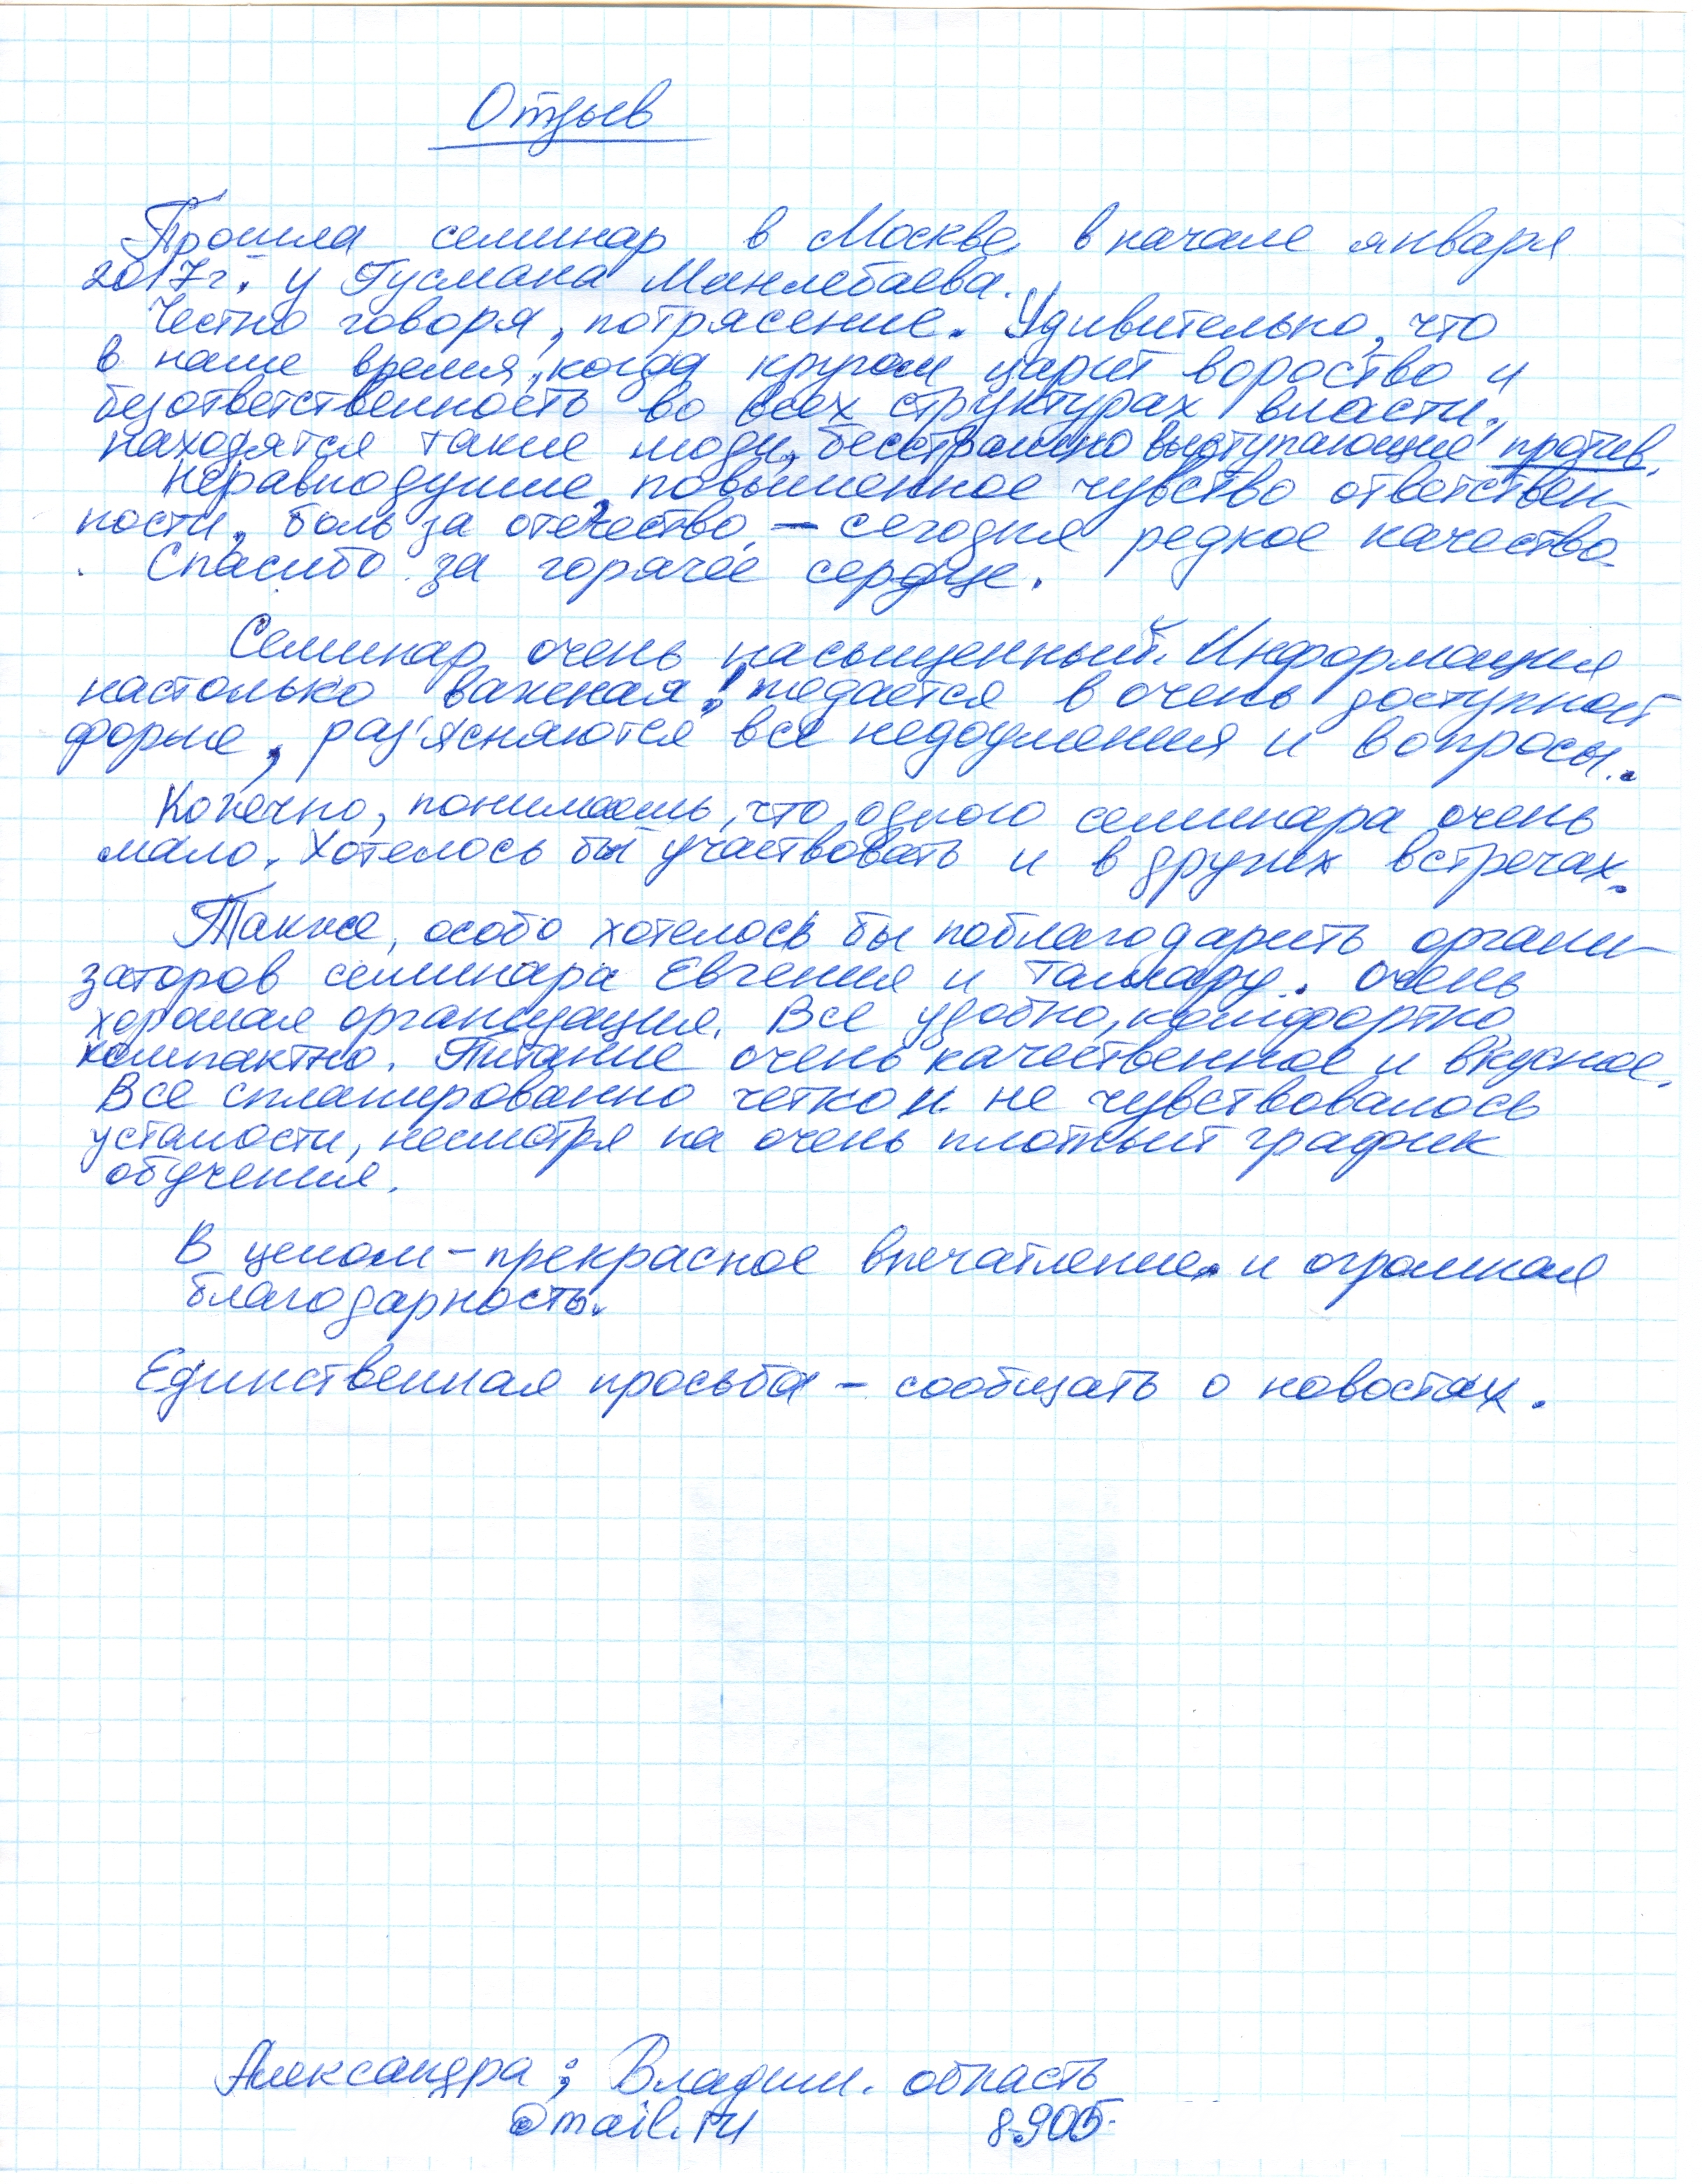 Отзыв
Прошла семинар в Москве в начале января
2017г. у Гусмана Минлебаева.
Честно говоря, потрясение. Удивительно, что
в наше время, когда кругом царит вороство и
безответственность во всех структурах власти,
находятся такие люди, бесстрашно выступающие против.
Неравнодушие, повышенное чувство ответствен-
ности, боль за отечество, – сегодня редкое качество.
Спасибо за горячее сердце.
Семинар очень насыщенный. Информация
настолько важная! подается в очень доступной
форме, раз'ясняются все недоумения и вопросы.
Конечно, понимаешь, что одного семинара очень
мало. Хотелось бы участвовать и в других встречах.
Также, особо хотелось бы поблагодарить органи-
заторов семинара Евгения и Тамару. Очень
хорошая организация. Все удобно, комфортно
компактно. Питание очень качественное и вкусное.
Все спланированно четко и не чувствовалось
усталости, несмотря на очень плотный график
обучения.
В целом – прекрасное впечатление и огромная
благодарность.
Единственная просьба – сообщать о новостях.
Александра; Владим. область
@mail.ru 8-905-